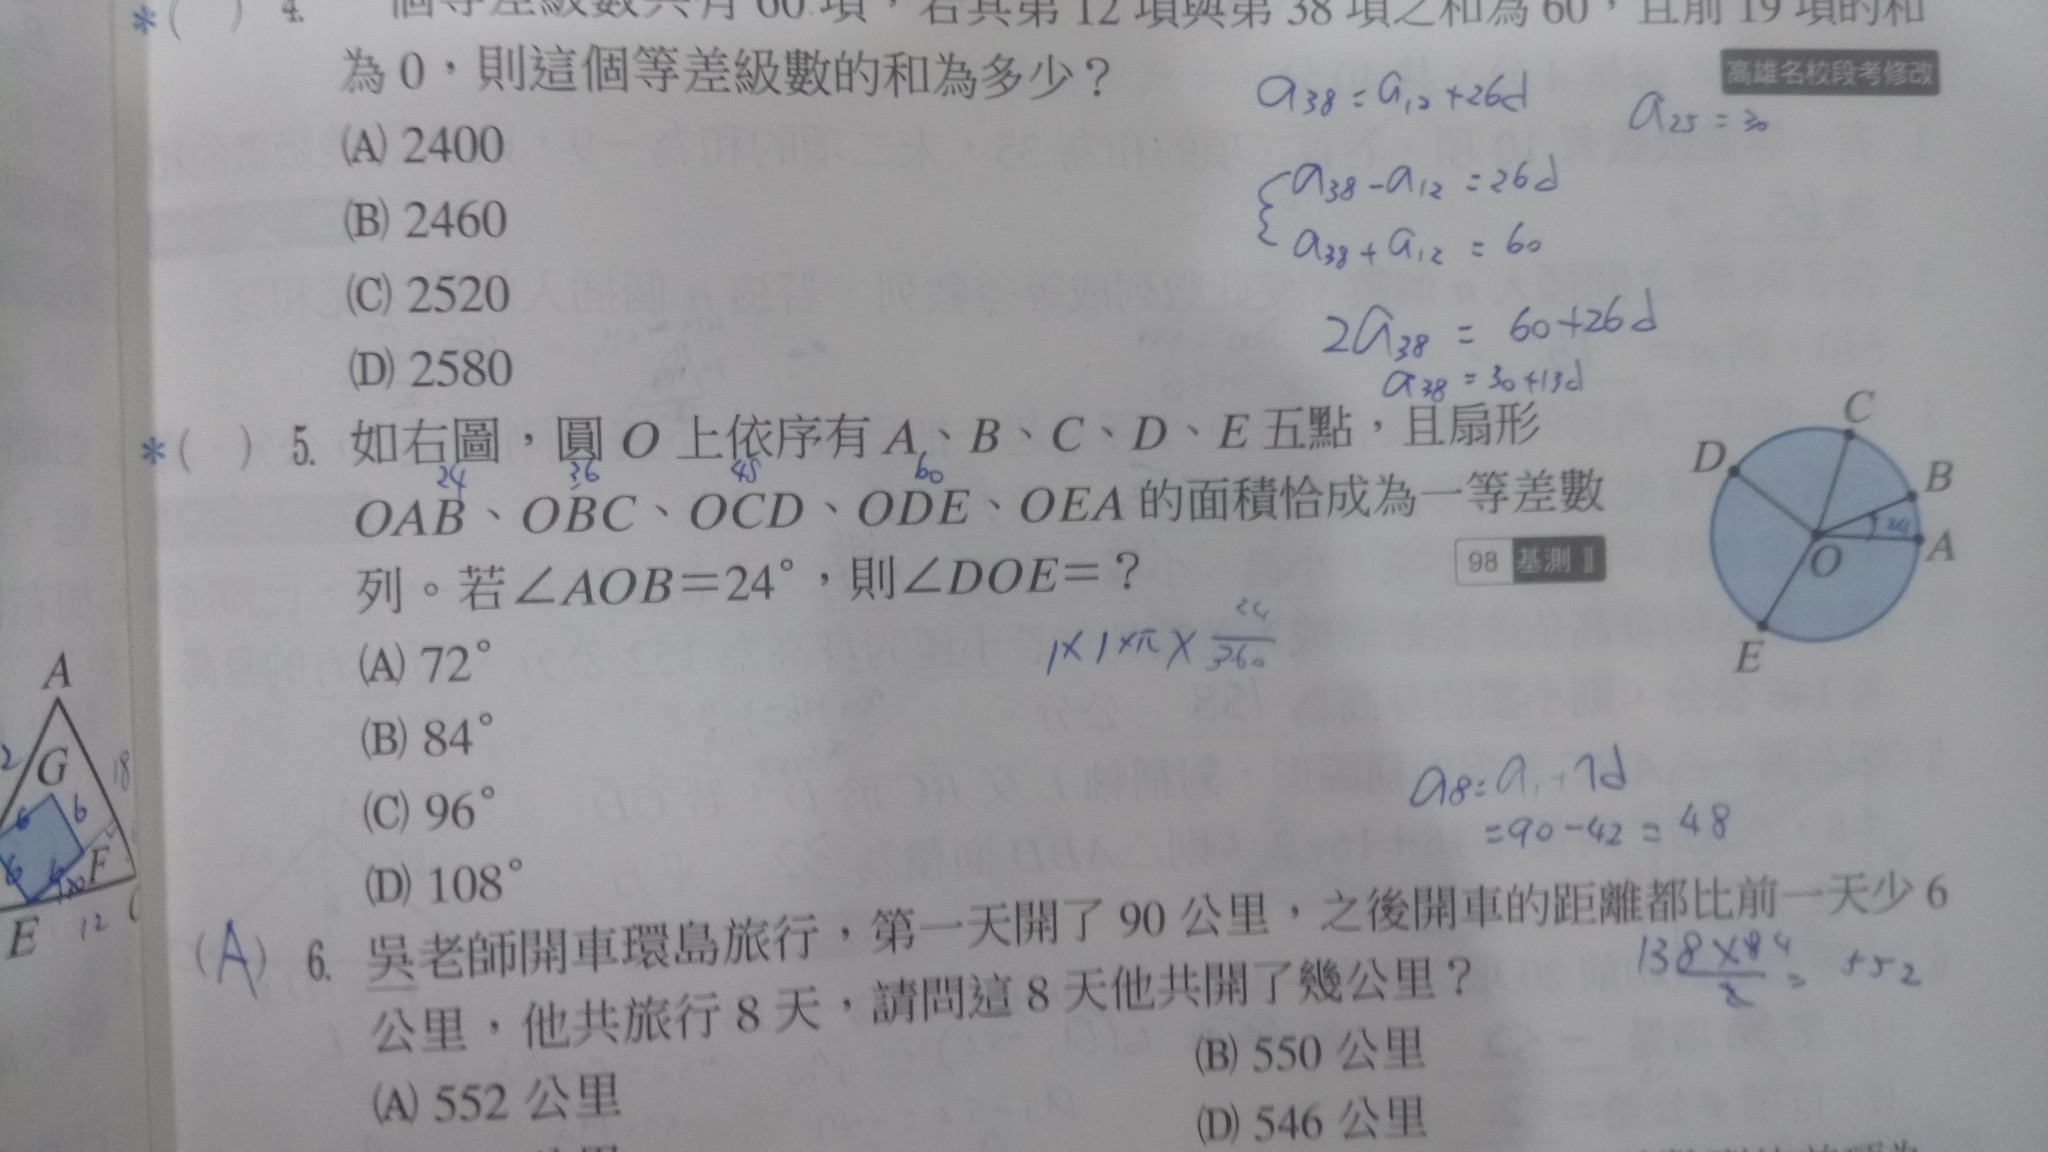 *( ) 4. 一個等差級數共有 60 項，若其第 12 項與第 38 項之和為 60，且前 19 項的和
為 0，則這個等差級數的和為多少？
高雄名校段考修改
(A) 2400
(B) 2460
(C) 2520
(D) 2580
a₃₈ = a₁₂ + 26d
a₂₅ = 30
a₃₈ - a₁₂ = 26d
a₃₈ + a₁₂ = 60
2a₃₈ = 60 + 26d
a₃₈ = 30 + 13d
*( ) 5. 如右圖，圓 O 上依序有 A、B、C、D、E 五點，且扇形
24 36 48 60
OAB、OBC、OCD、ODE、OEA 的面積恰成為一等差數
列。若∠AOB＝24°，則∠DOE＝？
98 基測 II
(A) 72°
(B) 84°
(C) 96°
(D) 108°
1×1×π× 24/360
C
D
B
24
A
O
E
a₈ = a₁ + 7d
= 90 - 42 = 48
(A) 6. 吳老師開車環島旅行，第一天開了 90 公里，之後開車的距離都比前一天少 6
公里，他共旅行 8 天，請問這 8 天他共開了幾公里？
138×8 4/2 = 552
(A) 552 公里
(B) 550 公里
(D) 546 公里
A
2
G
18
6
6
6
F
E
12